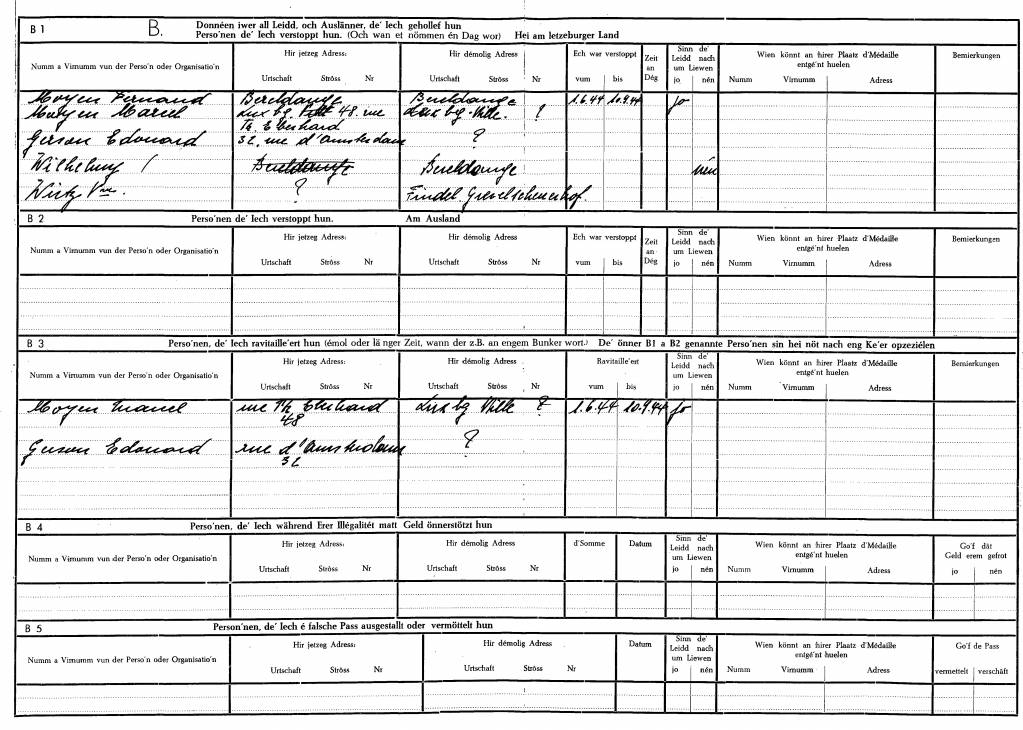 B 1 B. Donnéen iwer all Leidd, och Auslänner, de' Iech gehollef hun
Perso'nen de' Iech verstoppt hun. (Och wan et nömmen én Dag wor) Hei am letzeburger Land
Numm a Virnumm vun der Perso'n oder Organisatio'n
Hir jetzeg Adress:
Urtschaft Ströss Nr
Hir démolig Adress
Urtschaft Ströss Nr
Ech war verstoppt
vum bis
Zeit an Dég
Sinn de' Leidd nach um Liewen
jo nén
Wien könnt an hirer Plaatz d'Médaille entgé'nt huelen
Numm Virnumm Adress
Bemierkungen
Moyen Fernand Bereldange Bereldange 1.6.44 10.9.44 jo
Moyen Marcel Lux bg. 48. rue Lux bg. Ville. ?
Th. Eberhard
Gerson Edouard 32, rue d'Amsterdam ?
Wilhelmy / Bereldange Bereldange nén
Wirtz Vve. ? Findel. Grevelscheuerhof.
B 2 Perso'nen de' Iech verstoppt hun. Am Ausland
Numm a Virnumm vun der Perso'n oder Organisatio'n
Hir jetzeg Adress:
Urtschaft Ströss Nr
Hir démolig Adress
Urtschaft Ströss Nr
Ech war verstoppt
vum bis
Zeit an Dég
Sinn de' Leidd nach um Liewen
jo nén
Wien könnt an hirer Plaatz d'Médaille entgé'nt huelen
Numm Virnumm Adress
Bemierkungen
B 3 Perso'nen, de' Iech ravitaille'ert hun (émol oder lä nger Zeit, wann der z.B. an engem Bunker wort.) De' önner B1 a B2 genannte Perso'nen sin hei nöt nach eng Ke'er opzeziélen
Numm a Virnumm vun der Perso'n oder Organisatio'n
Hir jetzeg Adress:
Urtschaft Ströss Nr
Hir démolig Adress
Urtschaft Ströss Nr
Ravitaille'ert
vum bis
Sinn de' Leidd nach um Liewen
jo nén
Wien könnt an hirer Plaatz d'Médaille entgé'nt huelen
Numm Virnumm Adress
Bemierkungen
Moyen Marcel rue Th. Eberhard Lux bg Ville ? 1.6.44 10.9.44 jo
48
Gerson Edouard rue d'Amsterdam ?
32
B 4 Perso'nen, de' Iech während Erer Illégalitét matt Geld önnerstötzt hun
Numm a Virnumm vun der Perso'n oder Organisatio'n
Hir jetzeg Adress:
Urtschaft Ströss Nr
Hir démolig Adress
Urtschaft Ströss Nr
d'Somme
Datum
Sinn de' Leidd nach um Liewen
jo nén
Wien könnt an hirer Plaatz d'Médaille entgé'nt huelen
Numm Virnumm Adress
Go'f dät Geld erem gefrot
jo nén
B 5 Person'nen, de' Iech é falsche Pass ausgestallt oder vermöttelt hun
Numm a Virnumm vun der Perso'n oder Organisatio'n
Hir jetzeg Adress:
Urtschaft Ströss Nr
Hir démolig Adress
Urtschaft Ströss Nr
Datum
Sinn de' Leidd nach um Liewen
jo nén
Wien könnt an hirer Plaatz d'Médaille entgé'nt huelen
Numm Virnumm Adress
Go'f de Pass
vermettelt verschäft